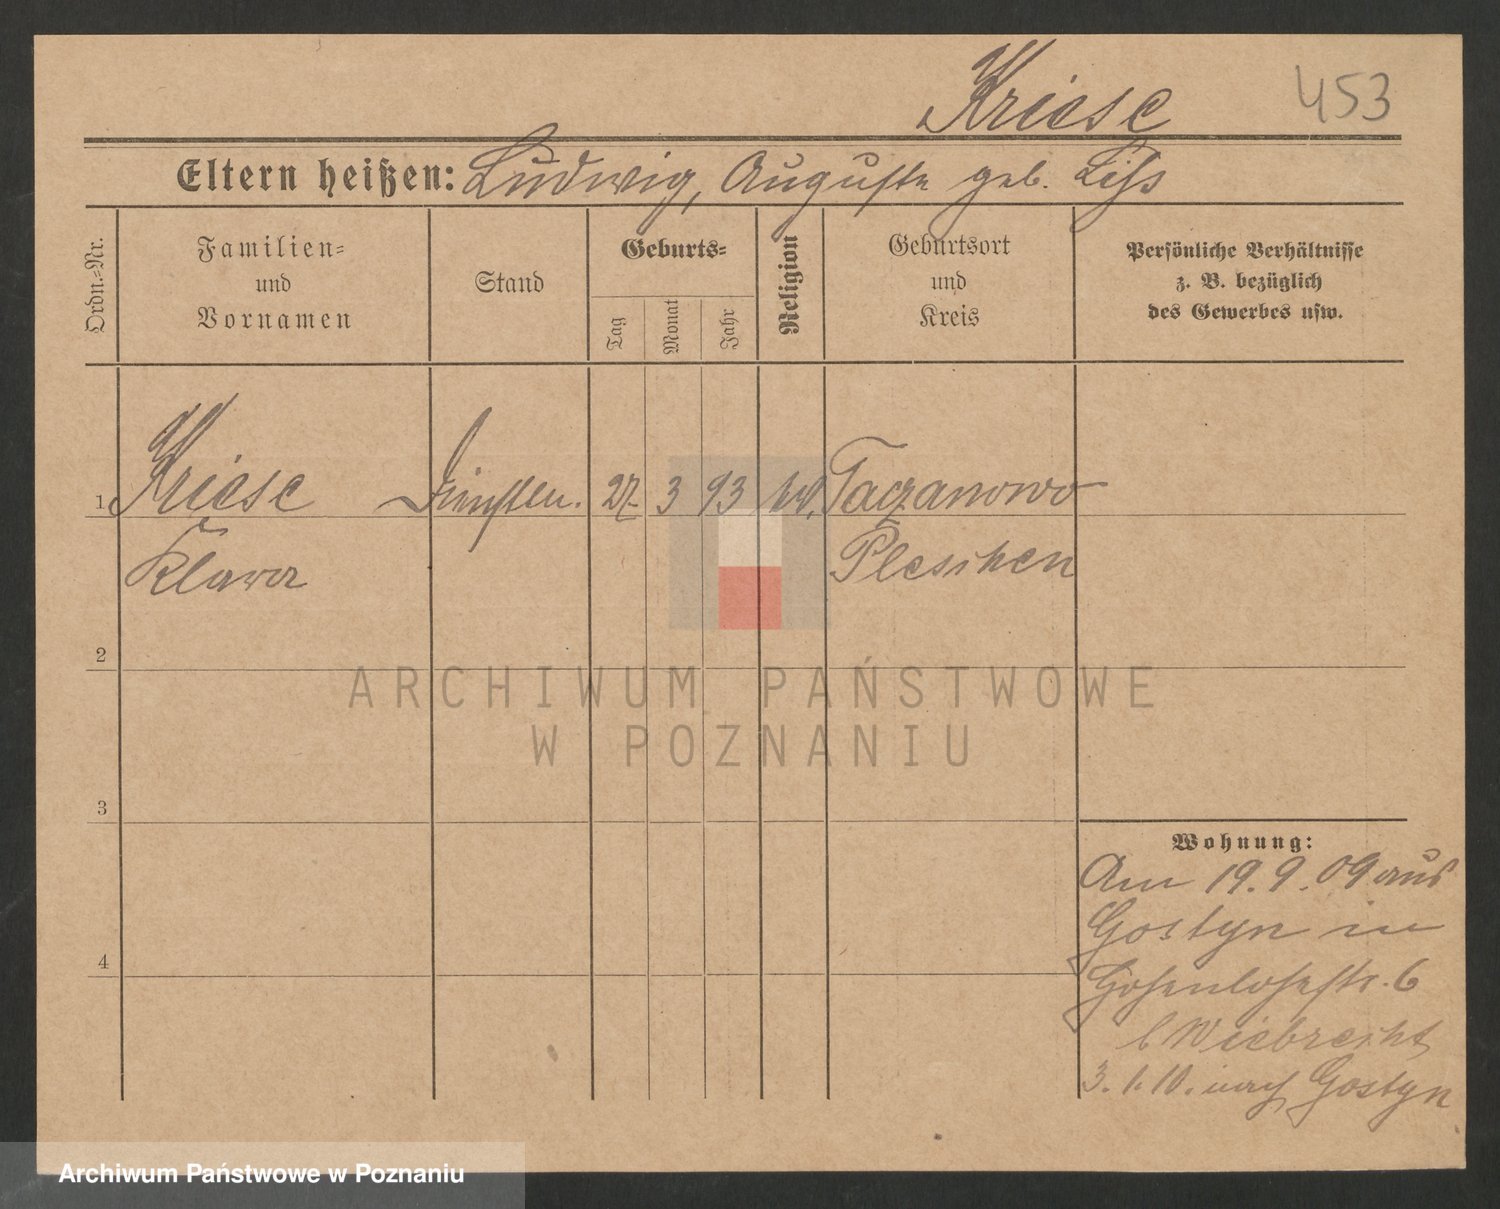 Kriese 453
Eltern heißen: Ludwig, Auguste geb. Liss
Ordn.-Nr.
Familien-
und
Vornamen
Stand
Geburts-
Tag
Monat
Jahr
Religion
Geburtsort
und
Kreis
Persönliche Verhältnisse
z. B. bezüglich
des Gewerbes usw.
1 Kriese 27 3 93 Taczanowo
Klara Pleschen
2
ARCHIWUM PAŃSTWOWE
W POZNANIU
3
Wohnung:
Am 19.9.09 aus
Gostyn in
4
Hohenlohestr. 6
b Wiebrecht
3.1.10. nach Gostyn
Archiwum Państwowe w Poznaniu